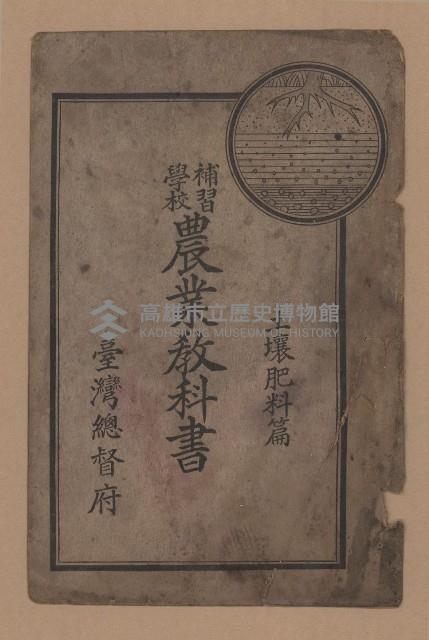 補習
學校
農業教科書
土壤肥料篇
臺灣總督府
高雄市立歷史博物館
KAOHSIUNG MUSEUM OF HISTORY